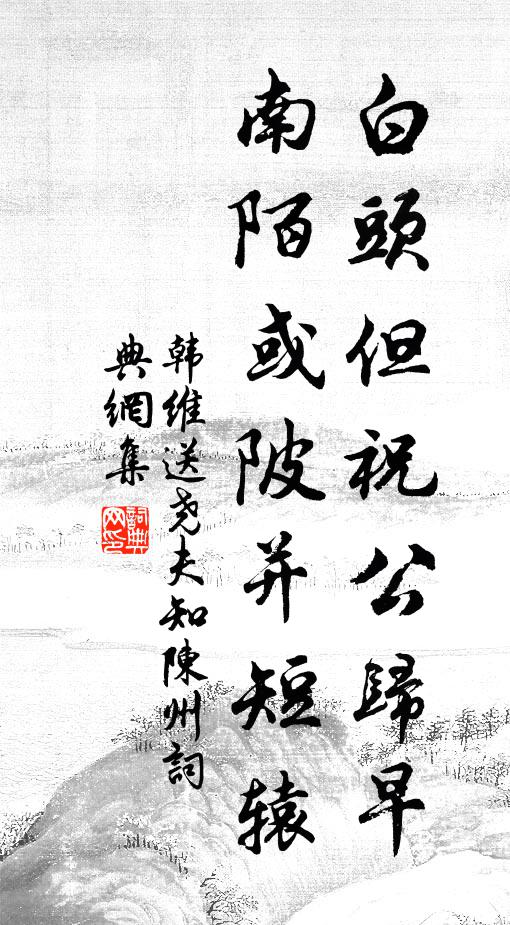 白頭但祝公歸早
南陌或陂并短辕
韩維送尧夫知陳州詞
典網集
詞典网印